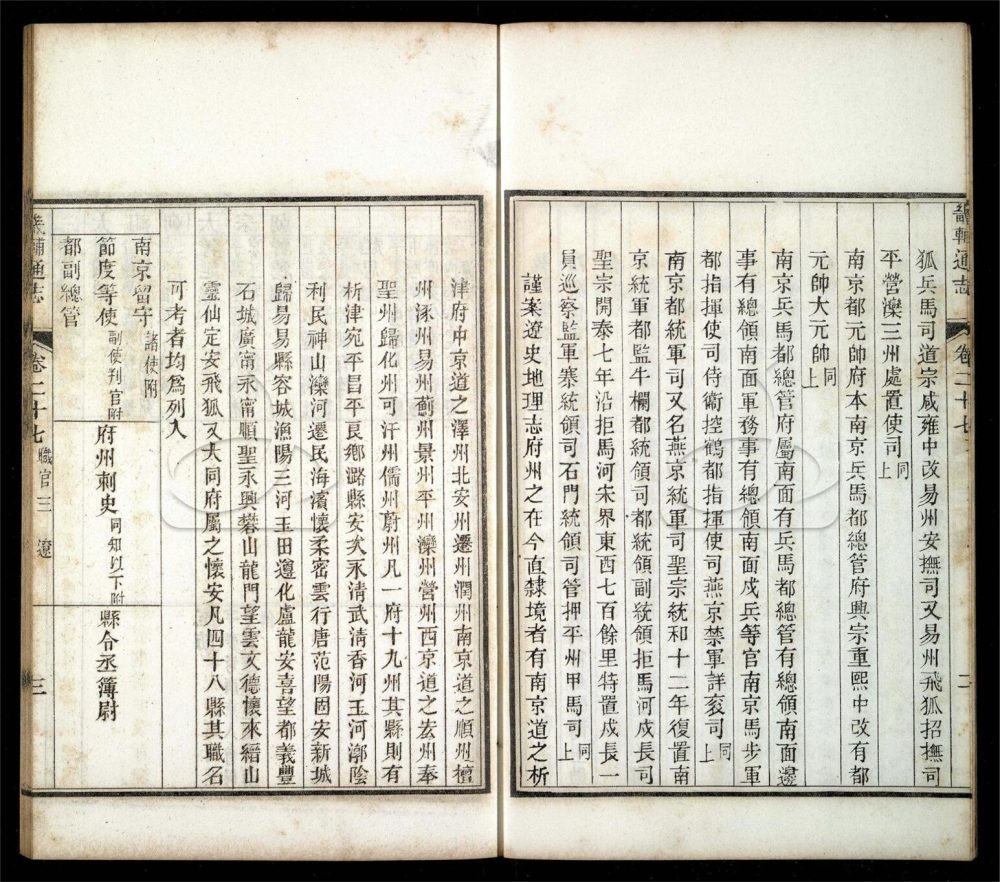 畿輔通志 卷二十七 二
狐兵馬司道宗咸雍中改易州安撫司又易州飛狐招撫司
平營灤三州處置使司同上
南京都元帥府本南京兵馬都總管府興宗重熙中改有都
元帥大元帥同上
南京兵馬都總管府屬南面有兵馬都總管有總領南面邊
事有總領南面軍務事有總領南面戍兵等官南京馬步軍
都指揮使司侍衞控鶴都指揮使司燕京禁軍詳袞司同上
南京都統軍司又名燕京統軍司聖宗統和十二年復置南
京統軍都監牛欄都統領司都統領副統領拒馬河戍長司
聖宗開泰七年沿拒馬河宋界東西七百餘里特置戍長一
員巡察監軍寨統領司石門統領司管押平州甲馬司同上
謹案遼史地理志府州之在今直隸境者有南京道之析
津府中京道之澤州北安州遷州潤州南京道之順州檀
州涿州易州薊州景州平州灤州營州西京道之宏州奉
聖州歸化州可汗州儒州蔚州凡一府十九州其縣則有
析津宛平昌平良鄉潞縣安次永淸武淸香河玉河漷陰
利民神山灤河遷民海濱懷柔密雲行唐范陽固安新城
歸易易縣容城漁陽三河玉田遵化盧龍安喜望都義豐
石城廣甯永甯順聖永興礬山龍門望雲文德懷來縉山
靈仙定安飛狐又大同府屬之懷安凡四十八縣其職名
可考者均爲列入
南京留守諸使附
節度等使副使判官附 府州刺史同知以下附 縣令丞簿尉
都副總管
畿輔通志 卷二十七 職官三 遼 三